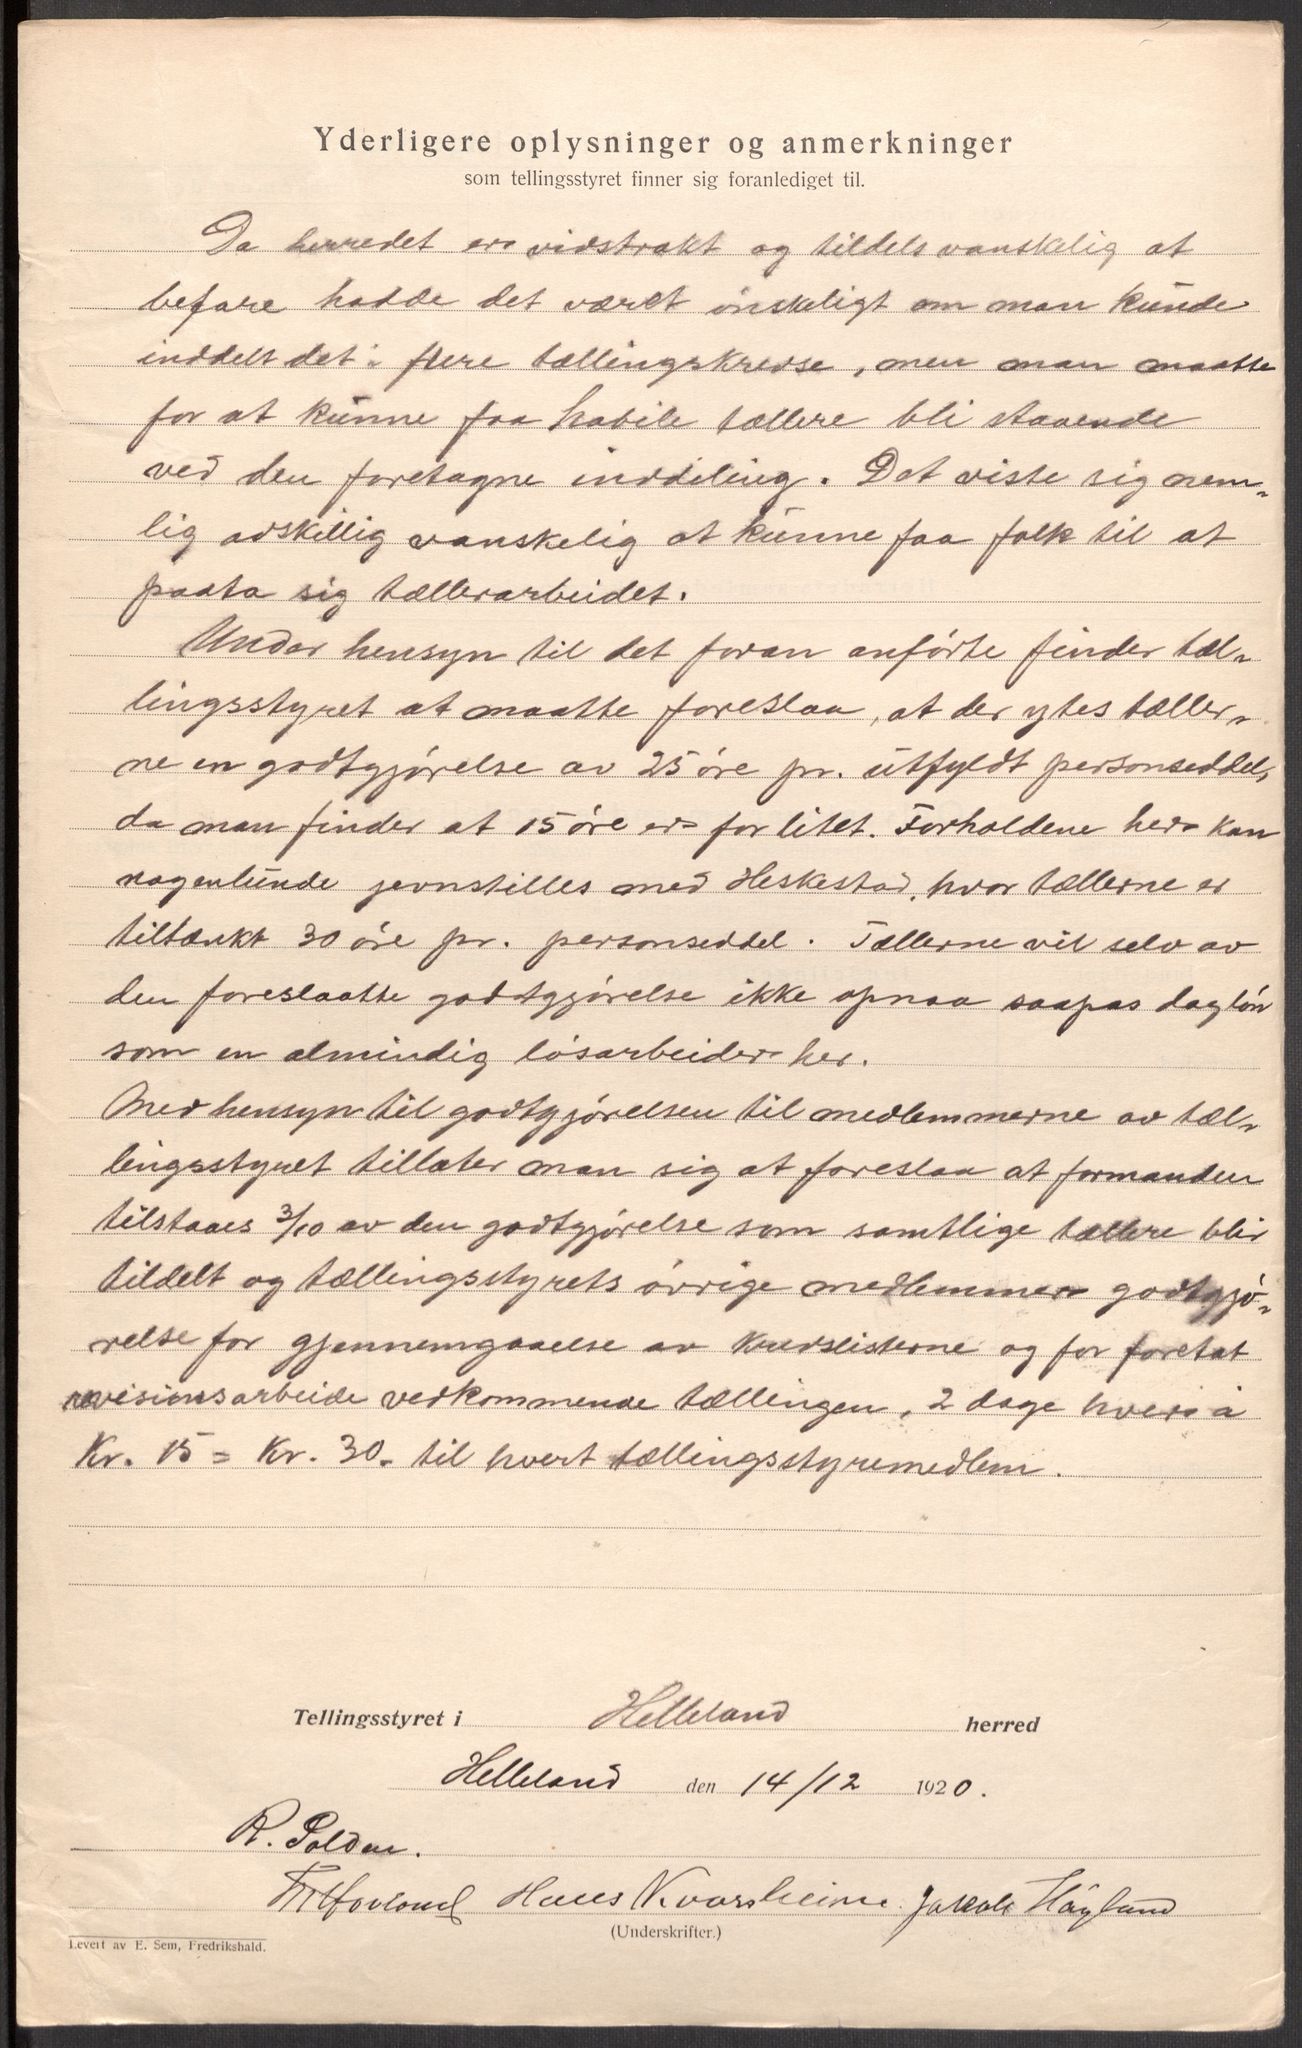 Yderligere oplysninger og anmerkninger
som tellingsstyret finner sig foranlediget til.
Da herredet er vidstrakt og tildels vanskelig at
befare hadde det været ønskeligt om man kunde
inddelt det i flere tællingskredse, men man maatte
for at kunne faa habile tællere bli staaende
ved den foretagne inddeling. Det viste sig nem-
lig adskillig vanskelig at kunne faa folk til at
paata sig tællerarbeidet.
Under hensyn til det foran anførte finder tæl-
lingsstyret at maatte foreslaa, at der ytes tæller-
ne en godtgjørelse av 25 øre pr. utfyldt personseddel,
da man finder at 15 øre er for litet. Forholdene her kan
nogenlunde jevnstilles med Heskestad, hvor tællerne er
tiltænkt 30 øre pr. personseddel. Tællerne vil selv av
den foreslaatte godtgjørelse ikke opnaa saapas dagløn
som en almindig løsarbeider her.
Med hensyn til godtgjørelsen til medlemmerne av tæl-
lingsstyret tillater man sig at foreslaa at formanden
tilstaaes 3/10 av den godtgjørelse som samtlige tællere blir
tildelt og tællingsstyrets øvrige medlemmer godtgjø-
relse for gjennemgaaelse av kredslisterne og for foretat
revisionsarbeide vedkommende tællingen, 2 dage hver à
Kr. 15 = Kr. 30.- til hvert tællingsstyremedlem.
Tellingsstyret i Helleland herred
Helleland den 14/12 1920.
R. Polden.
Hovland Hans Kvassheim. Jakob Høgland
(Underskrifter.)
Levert av E. Sem, Fredrikshald.